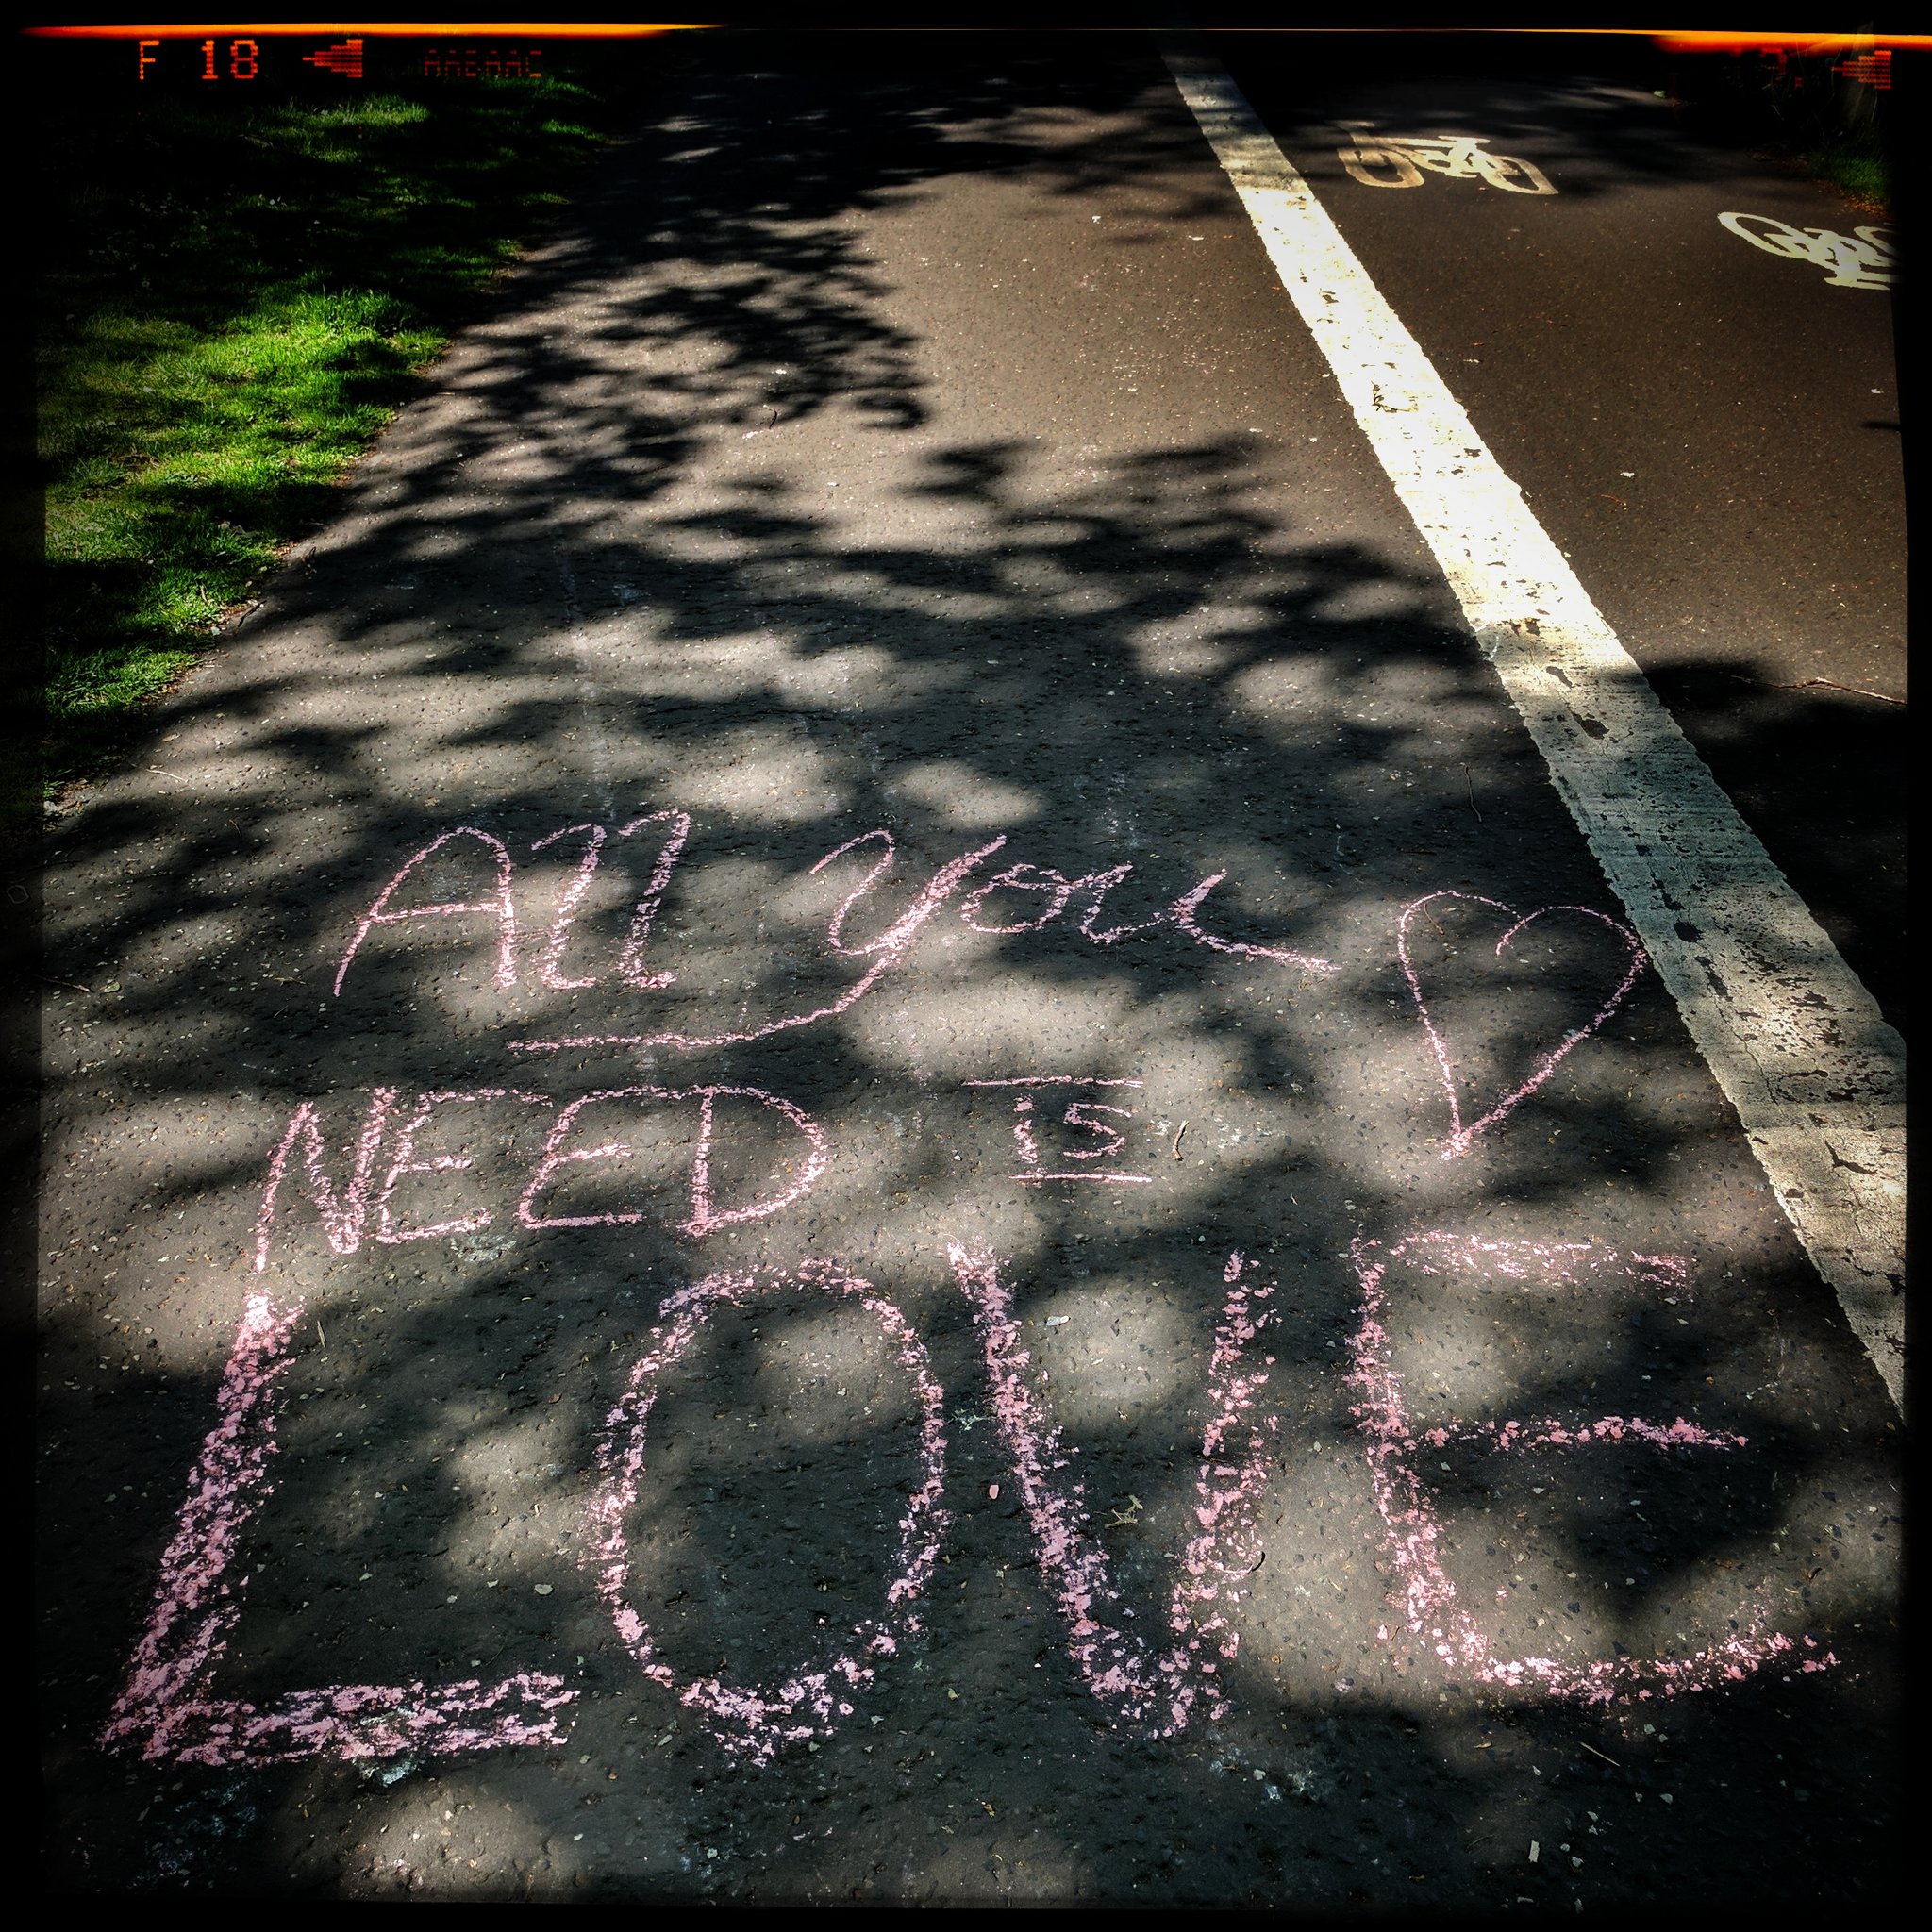 F 18
All you
NEED IS
LOVE